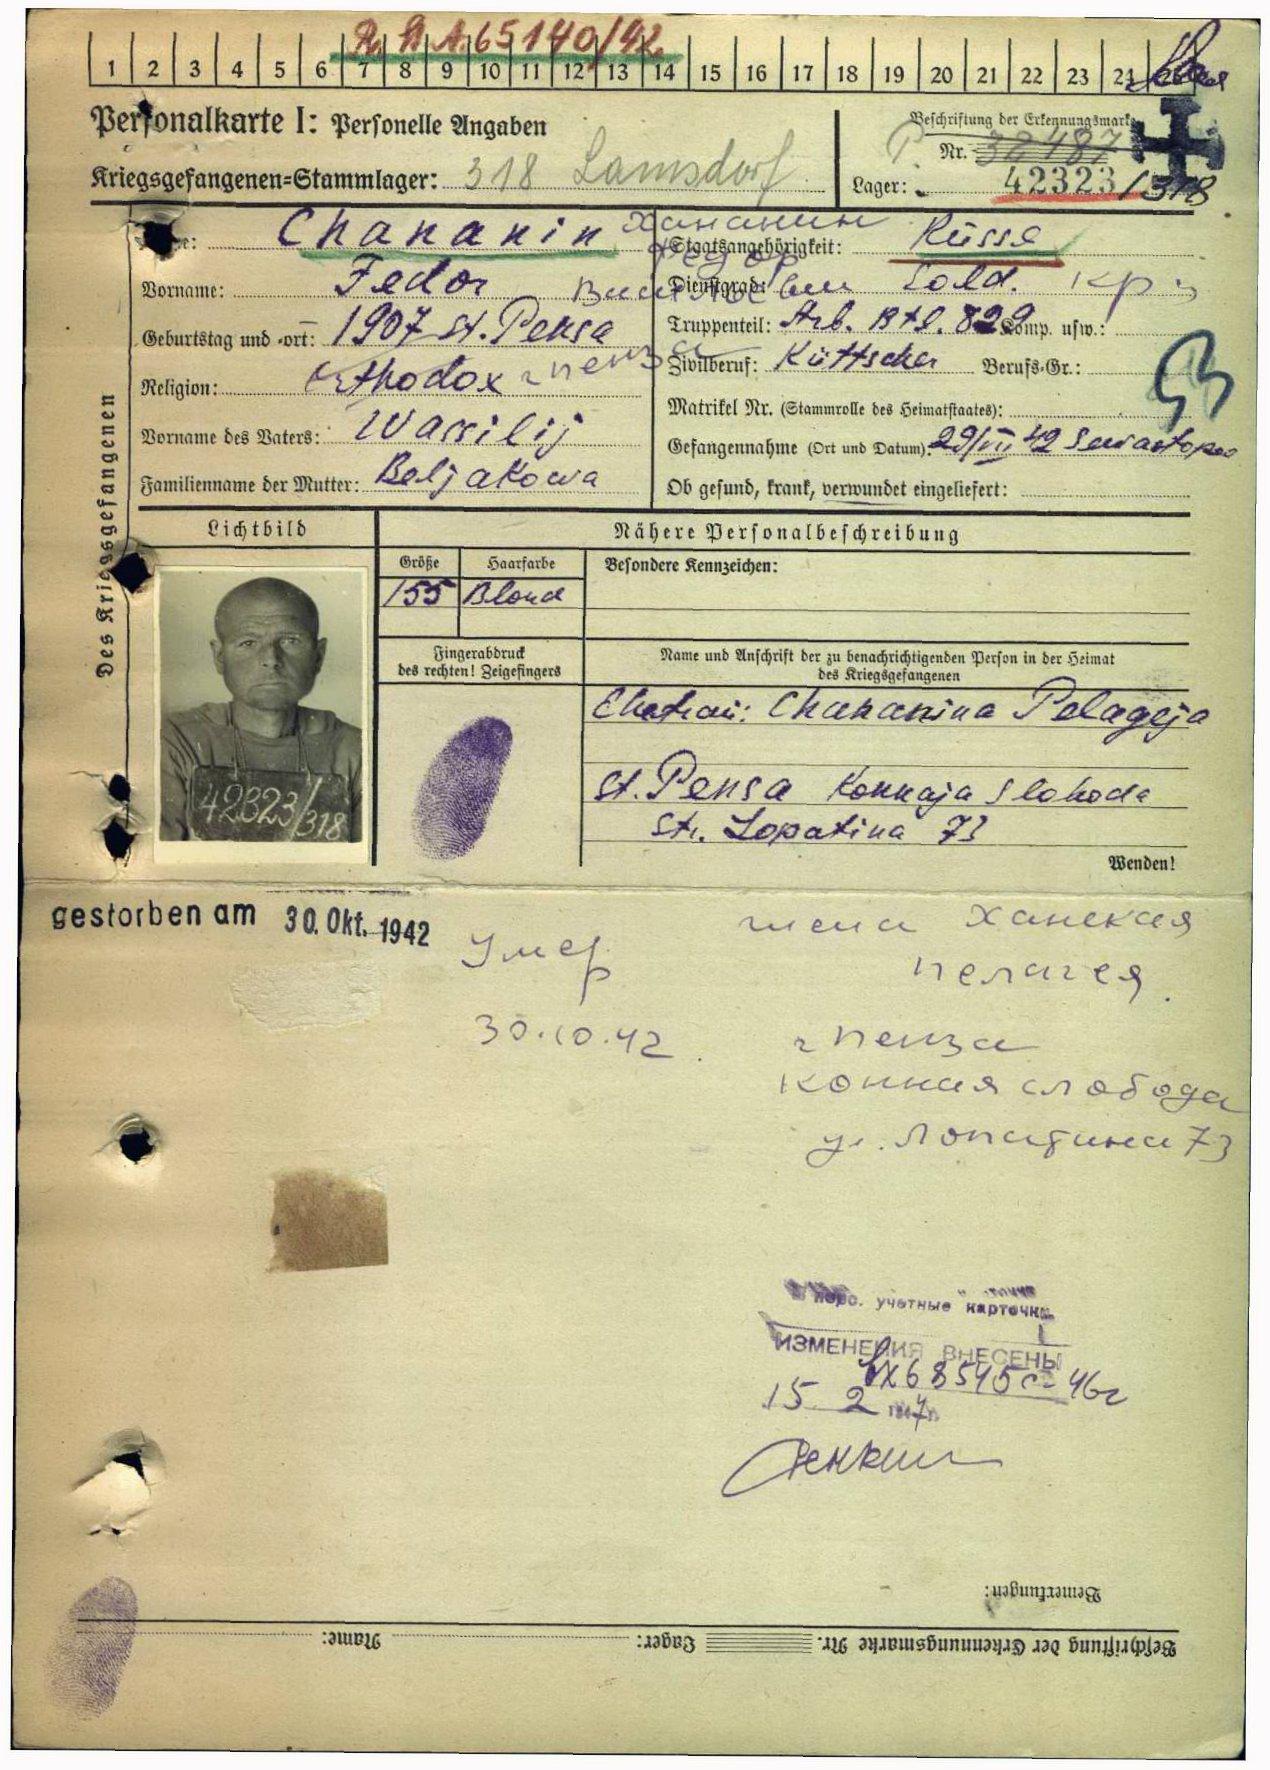 R. A. A. 65140/42
1 2 3 4 5 6 7 8 9 10 11 12 13 14 15 16 17 18 19 20 21 22 23 24 25
Personalkarte I: Personelle Angaben
Kriegsgefangenen=Stammlager: 318 Lamsdorf
Beschriftung der Erkennungsmarke
Nr. 32487
Lager: 42323/318
Des Kriegsgefangenen
Chananin Хананин
Vorname: Fedor Федор
Васильевич
Geburtstag und -ort: 1907 St. Pensa
г Пенза
Religion: Orthodox
Vorname des Vaters: Wassilij
Familienname der Mutter: Beljakowa
Staatsangehörigkeit: Russe
Dienstgrad: Sold. кр
Truppenteil: Arb. Btl. 829 Komp. usw.:
Zivilberuf: Küttscher Berufs-Gr.:
Matrikel Nr. (Stammrolle des Heimatstaates):
Gefangennahme (Ort und Datum): 29/VI 42 Sewastopol
Ob gesund, krank, verwundet eingeliefert:
Lichtbild
Nähere Personalbeschreibung
Größe Haarfarbe Besondere Kennzeichen:
155 Blond
Fingerabdruck
des rechten! Zeigefingers
Name und Anschrift der zu benachrichtigenden Person in der Heimat
des Kriegsgefangenen
Ehefrau: Chananina Pelageja
St. Pensa Konnaja Sloboda
Str. Lopatina 73
42323/318
Wenden!
gestorben am 30. Okt. 1942
Умер
30.10.42
жена Ханская
Пелагея
г Пенза
Конная слобода
ул. Лопатина 73
учетные карточки
ИЗМЕНЕНИЯ ВНЕСЕНЫ
68545с-46г
15 2
Bemerkungen:
Beschriftung der Erkennungsmarke Nr. Lager: Name: